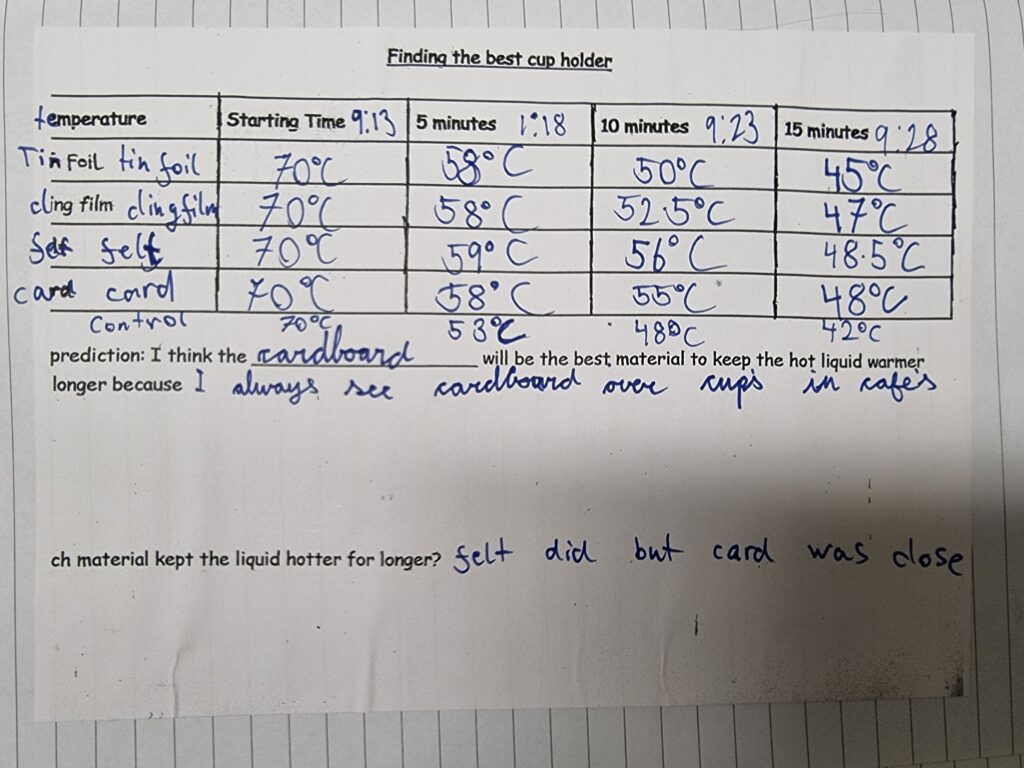 Finding the best cup holder
temperature Starting Time 9:13 5 minutes 1:18 10 minutes 9:23 15 minutes 9:28
Tin Foil tin foil 70°C 58°C 50°C 45°C
cling film cling film 70°C 58°C 52.5°C 47°C
felt 70°C 59°C 56°C 48.5°C
card card 70°C 58°C 55°C 48°C
Control 70°C 53°C 48°C 42°C
prediction: I think the cardboard will be the best material to keep the hot liquid warmer
longer because I always see cardboard over cups in cafes
ch material kept the liquid hotter for longer? felt did but card was close